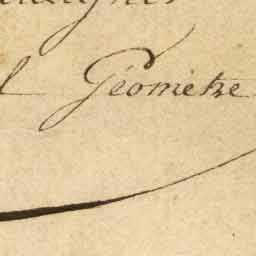 l Géometre